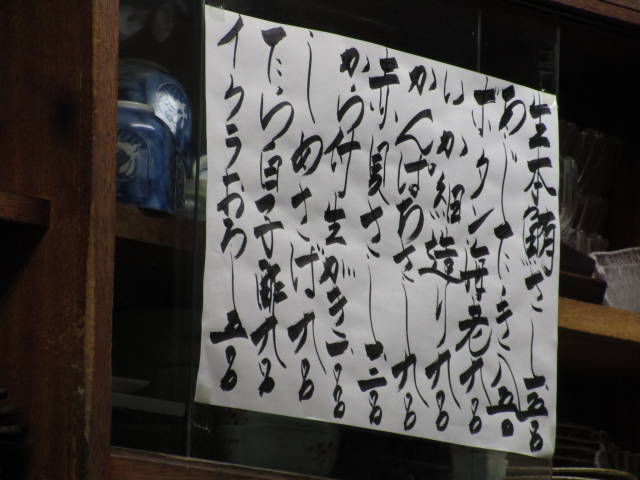 生本鮪さし 一、五〇〇
あじたたき 八五〇
ボタン海老 九〇〇
いか細造り 九〇〇
かんぱちさし 九〇〇
赤貝さし 一、二〇〇
から付生がき 一、〇〇〇
しめさば 九〇〇
たら白子酢 九〇〇
イクラおろし 五〇〇